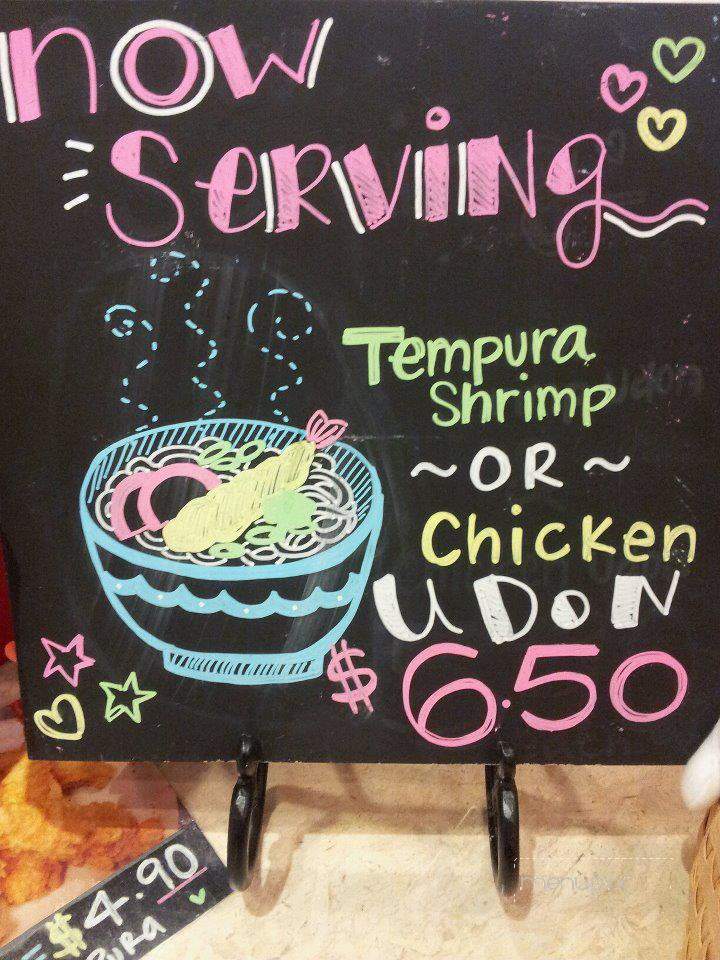 now
Serving
Tempura
Shrimp
~OR~
Chicken
UDON
$6.50
$4.90